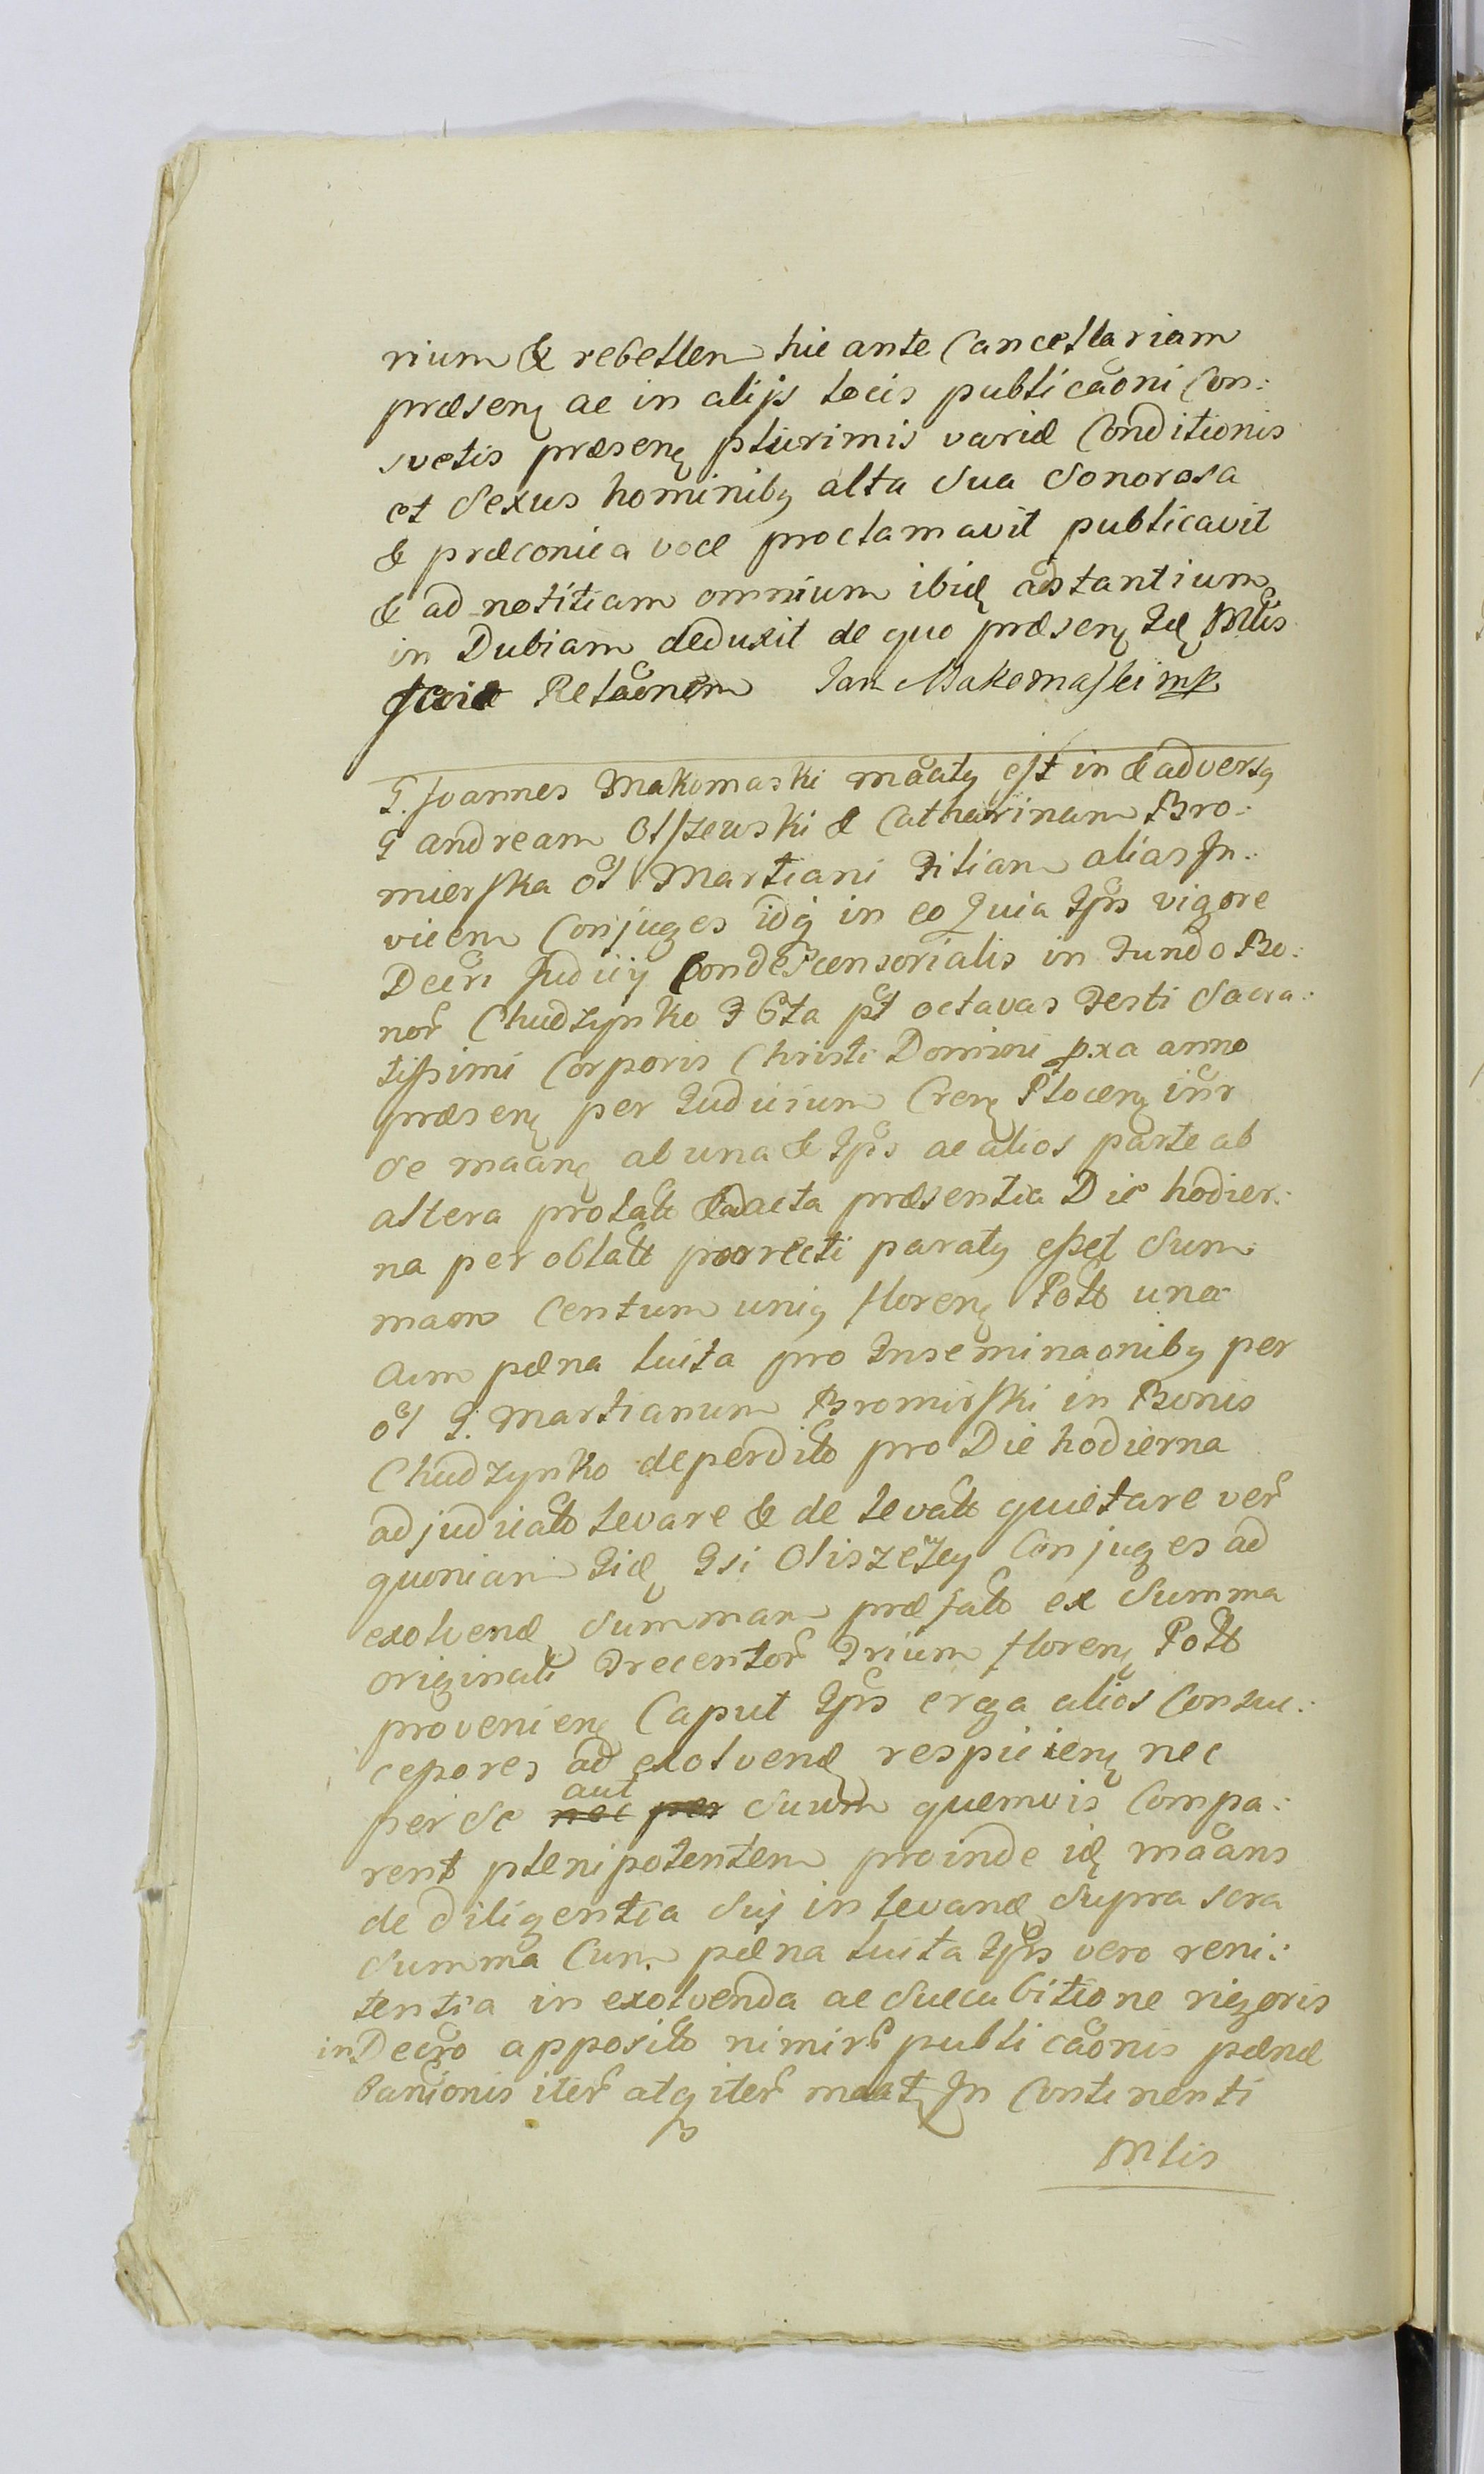 rium & rebellen hic ante Cancellariam
præsenę ac in alijs locis publicãoni Con:
svetis præsenę plurimis variæ Conditionis
et Sexus hominibꝫ alta Sua Sonorosa
& præconica voce proclamavit publicavit
& ad notitiam omnium ibidę adstantium
in Dubiam deduxit de quo præsenę Idę Mlis
Relãonem Jan Makomaski mp
G. Joannes Makomaski mãatꝫ est in & adversꝫ
G Andream Olszewski & Catharinam Bro:
mierska ol Martiani Filiam alias In:
vicem Conjuges idq in eo Quia Ipis vigore
Decri Judicij Condescensorialis in Fundo Bo:
nor Chudzynko F 6ta pt octavas Festi Sacra:
tissimi Corporis Christi Domini pxa anno
præsenę per Judicium Crenę Plocenę inr
se mãanę ab una & Ipis ac alios parte ab
altera prolati & ad acta præsentia Die hodier:
na per oblatt porrecti paratꝫ esset Sum
mam Centum unius florenę Poltt una
Cum pæna luita pro Inseminãonibꝫ per
ol G. Martianum Bromirski in Bonis
Chudzynko deperditt pro Die hodierna
adjudicatt levare & de levatt quietare ver
quoniam Iidę Isi Oliszewscy Conjuges ad
exolvendę Summam præfatt ex Summa
originali Trecentor Trium florenę Poltt
provenienę Caput Ipis erga alios Consuc:
cessores ad exolvendę respicienę nec
per se aut ~~nec per~~ Suum quemvis Compa:
rent plenipotentem proinde idę mãans
de diligentia Sui in levandę Supra scra
Summa Cum pæna luita Ipis vero reni:
tentia in exolvenda ac Succubitione rigoris
in Decro apposito nimir publicãonis pænæ
Banionis iter atq iter mãatꝫ In Continenti
Mlis